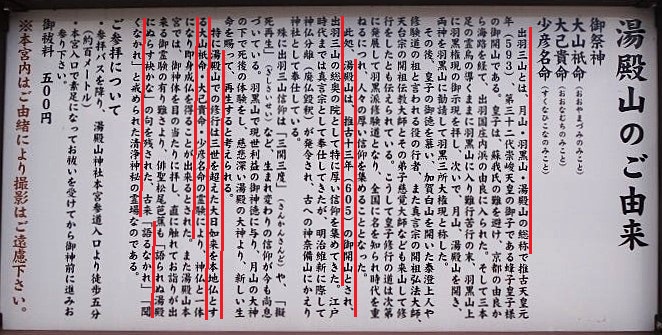 湯殿山のご由来
御祭神
大山祇命（おおやまづみのみこと）
大己貴命（おおなむちのみこと）
少彦名命（すくなひこなのみこと）
出羽三山とは、月山・羽黒山・湯殿山の総称で推古天皇元
年（593）、第三十二代崇峻天皇の御子である蜂子皇子様
の御開山である。皇子は、蘇我氏の難を避け、京都の由良か
ら海路を経て、出羽国庄内浜の由良に入られた。そして三本
足の霊烏の導くままに羽黒山に入り難行苦行の末、羽黒山上
に羽黒権現の御示現を拝し、次いで、月山、湯殿山を開き、
両神を羽黒山に勧請して羽黒三所大権現と称した。
その後、皇子の御徳を慕い、加賀白山を開いた泰澄上人や
修験道の祖と言われる役の行者、また真言宗の開祖弘法大師、
天台宗の開祖伝教大師とその弟子慈覚大師なども来山して修
行をしたとも伝えられている。こうして皇子修行の道は次第
に発展して羽黒派修験道となり、全国に名を知られ時代を重
ねるにつれ、人々の厚い信仰を集めることとなった。
此処、湯殿山は、推古十三年（605）の御開山とされ、
出羽三山の総奥の院として特に厚い信仰を集めてきた。江戸
時代までは真言宗として奉仕してきたが、明治維新に際して
神仏分離（廃仏毀釈）が発令され、古への神奈備山にかえり
神社として奉仕している。
殊に出羽三山信仰は「三関三度」（さんかんさんど）や、「擬
死再生」（ぎしさいせい）など、生まれ変わりの信仰が今も尚息
づいている。羽黒山で現世利益の御神徳に与り、月山の大神
の下で死後の体験をし、慈悲深い湯殿の大神より、新しい生
命を賜って、再生すると考えられる。
特に湯殿山での修行は三世を超えた大日如来を本地仏とす
る大山祇命・大己貴命・少彦名命の霊験により、神仏と一体
になり即身成仏を得ることが出来るとされた。また湯殿山本
宮では、御神体を目の当たりに拝し、直に触れてお詣りが出
来る御霊験の有り難さより、俳聖松尾芭蕉も「語られぬ湯殿
にぬらす袂かな」の句を残された。古来「語るなかれ」「聞
くなかれ」と戒められた清浄神秘の霊場なのである。
ご参拝について
・参拝バスを降り、湯殿山神社本宮参道入口より徒歩五分
（約百メートル）
・本宮入口で素足になってお祓いを受けてから御神前に進みお
参り下さい。
御祓料　五〇〇円
※本宮内はご由緒により撮影はご遠慮下さい。